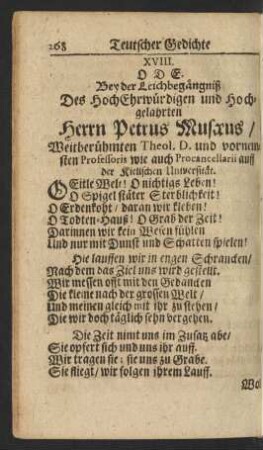 268 Teutscher Gedichte
XVIII.
O D E.
Bey der Leichbegängniß
Des HochEhrwürdigen und Hoch-
gelahrten
Herrn Petrus Musæus /
Weitberühmten Theol. D. und vornem
sten Professoris wie auch Procancellarii auff
der Kielischen Universität.
O Eitle Welt! O nichtiges Leben!
O Spigel stäter Sterblichkeit!
O Erdenkoht / daran wir kleben!
O Todten-Hauß! O Grab der Zeit!
Darinnen wir kein Wesen fühlen
Und nur mit Dunst und Schatten spielen!
Hie lauffen wir in engen Schrancken /
Nach dem das Ziel uns wird gestellt.
Wir messen offt mit den Gedancken
Die kleine nach der grossen Welt /
Und meinen gleich mit ihr zu stehen /
Die wir doch täglich sehn vergehen.
Die Zeit nimt uns im Zusatz abe /
Sie opfert sich und uns ihr auff.
Wir tragen sie: sie uns zu Grabe.
Sie fliegt / wir folgen ihrem Lauff.